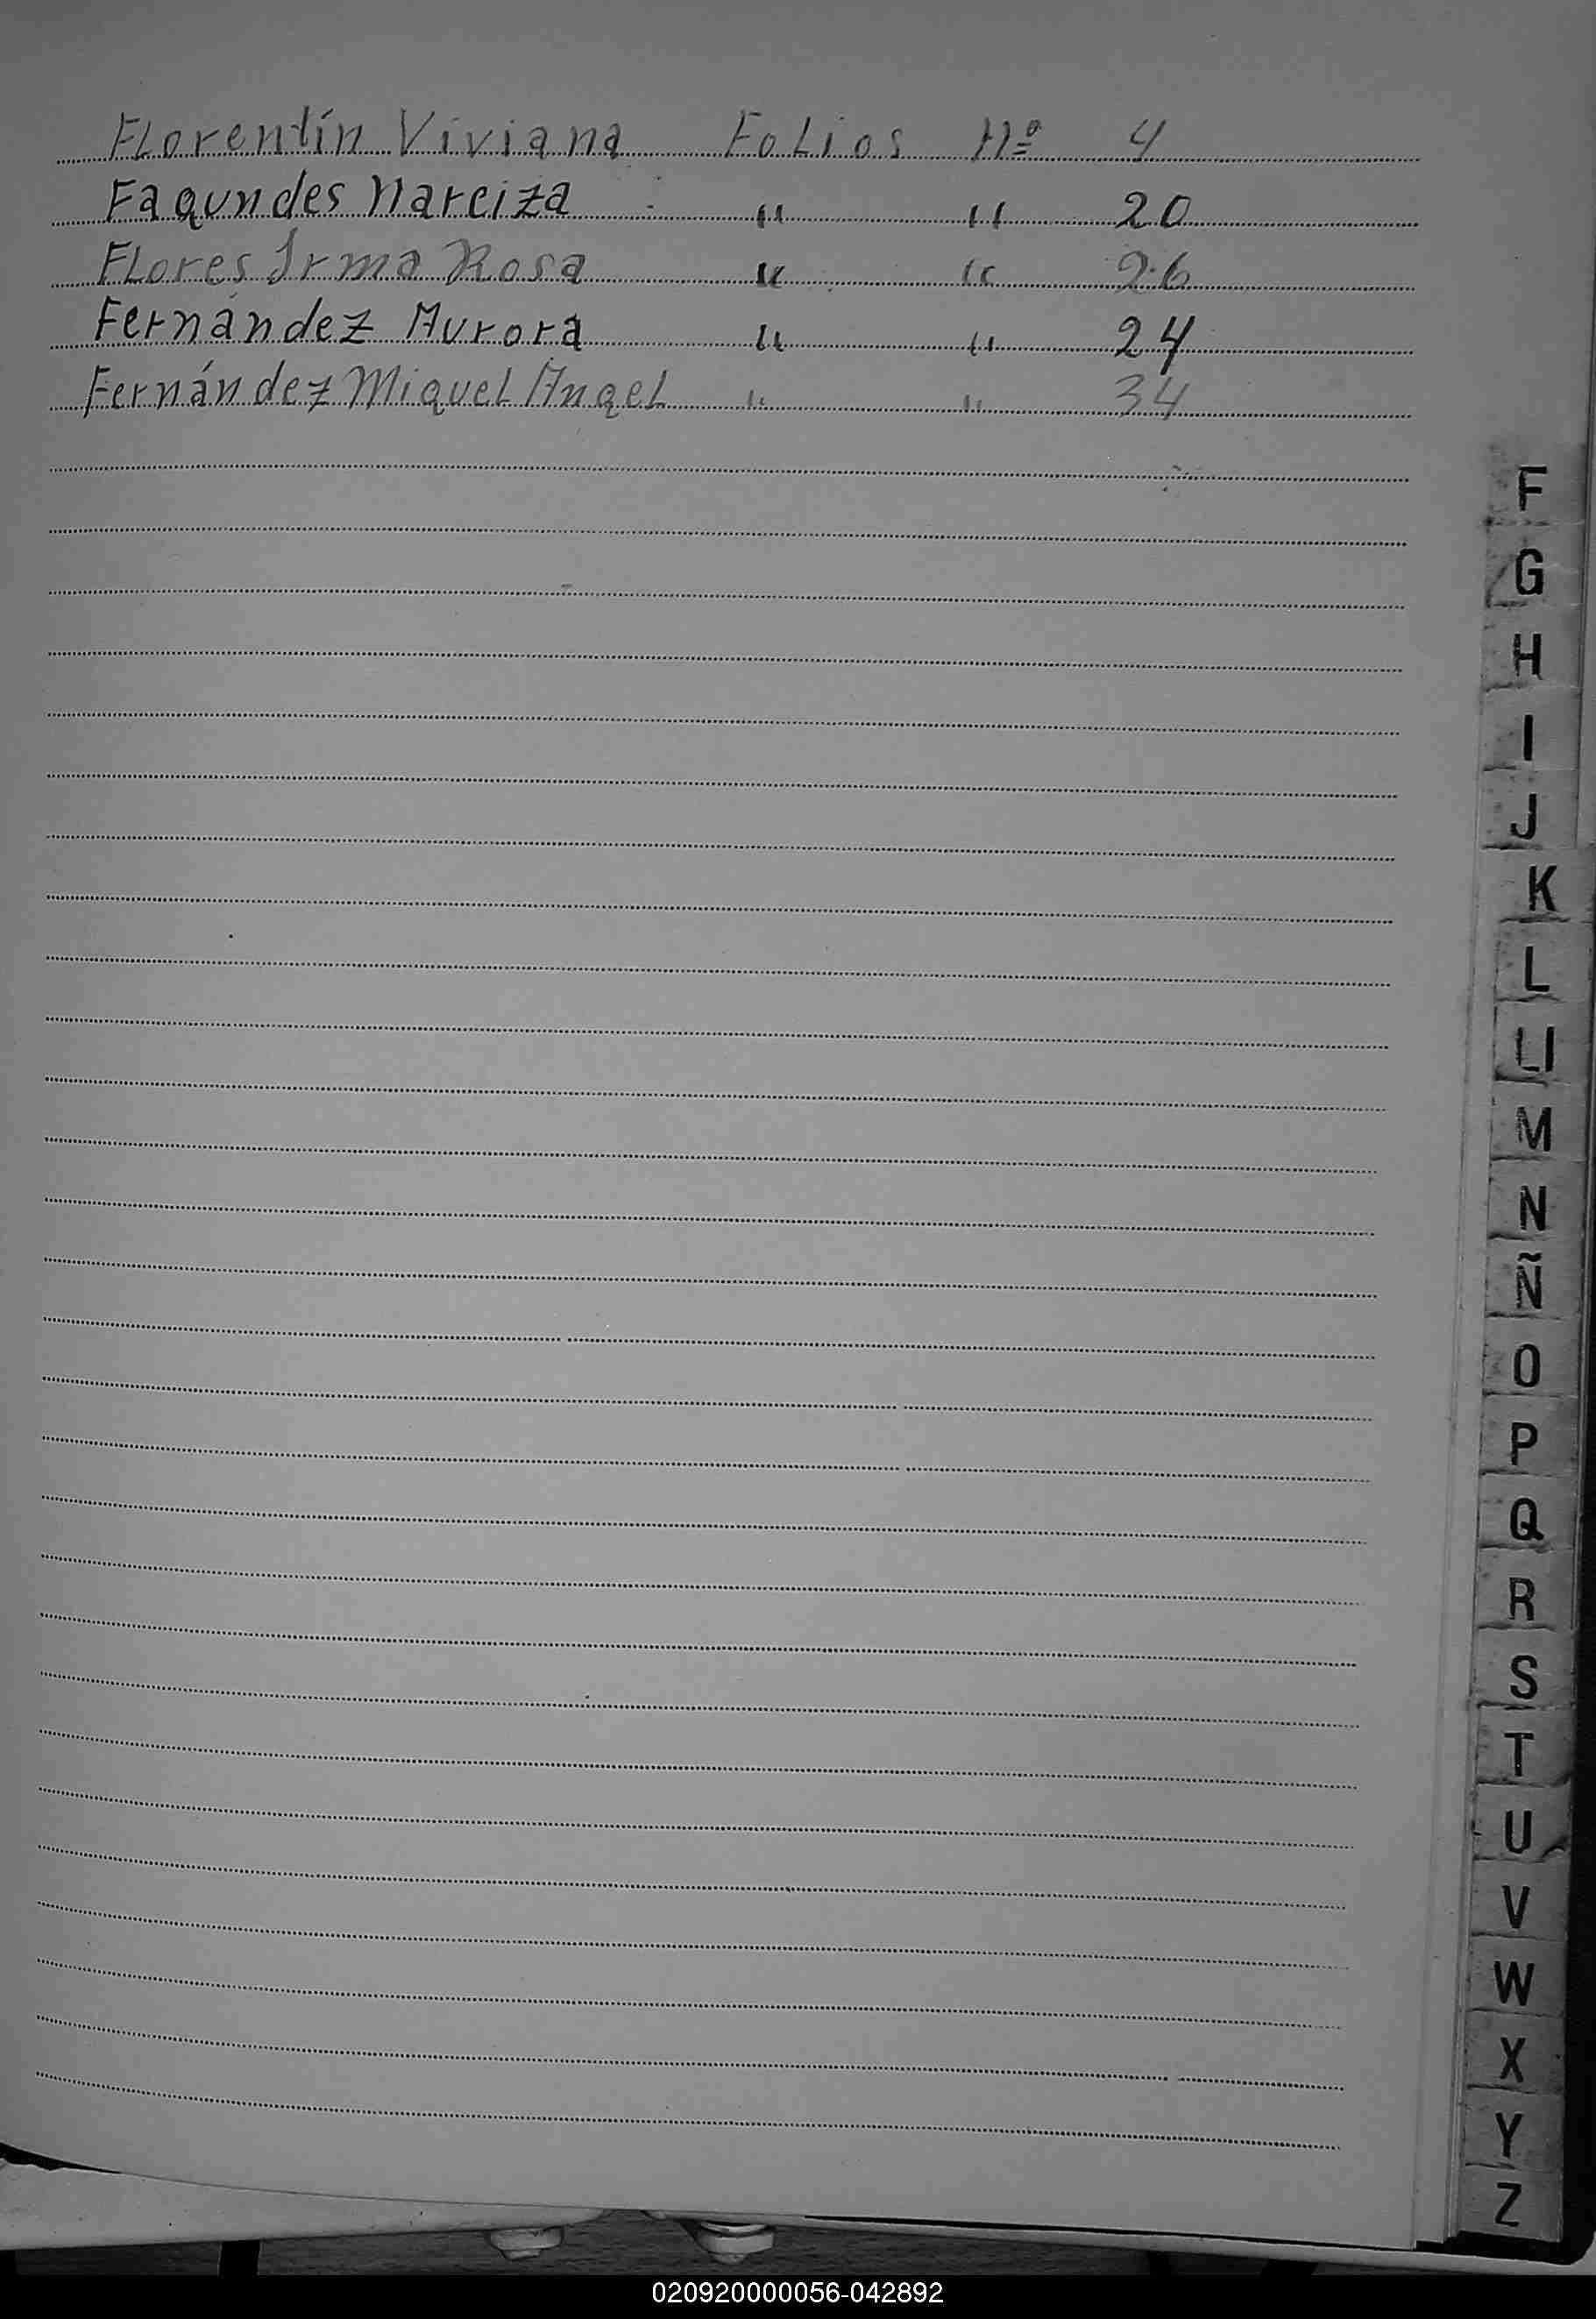 Florentín Viviana Folios Nº 4
Fagundes Narciza " " 20
Flores Irma Rosa " " 26
Fernández Aurora " " 24
Fernández Miguel Angel " " 34
F
G
H
I
J
K
L
Ll
M
N
Ñ
O
P
Q
R
S
T
U
V
W
X
Y
Z
020920000056-042892